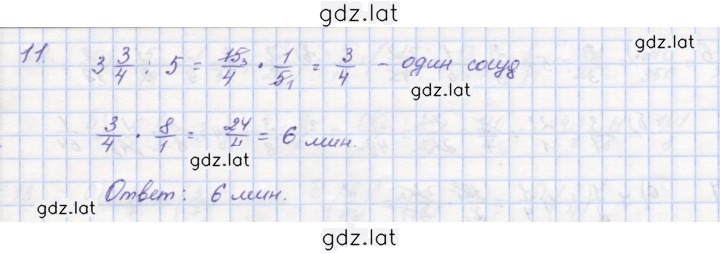 gdz.lat
11. 3 3/4 : 5 = 15 3/4 · 1/5 1 = 3/4 - один сосуд
gdz.lat
gdz.lat
3/4 · 8/1 = 24/4 = 6 мин.
gdz.lat
Ответ: 6 мин.
gdz.lat
gdz.lat